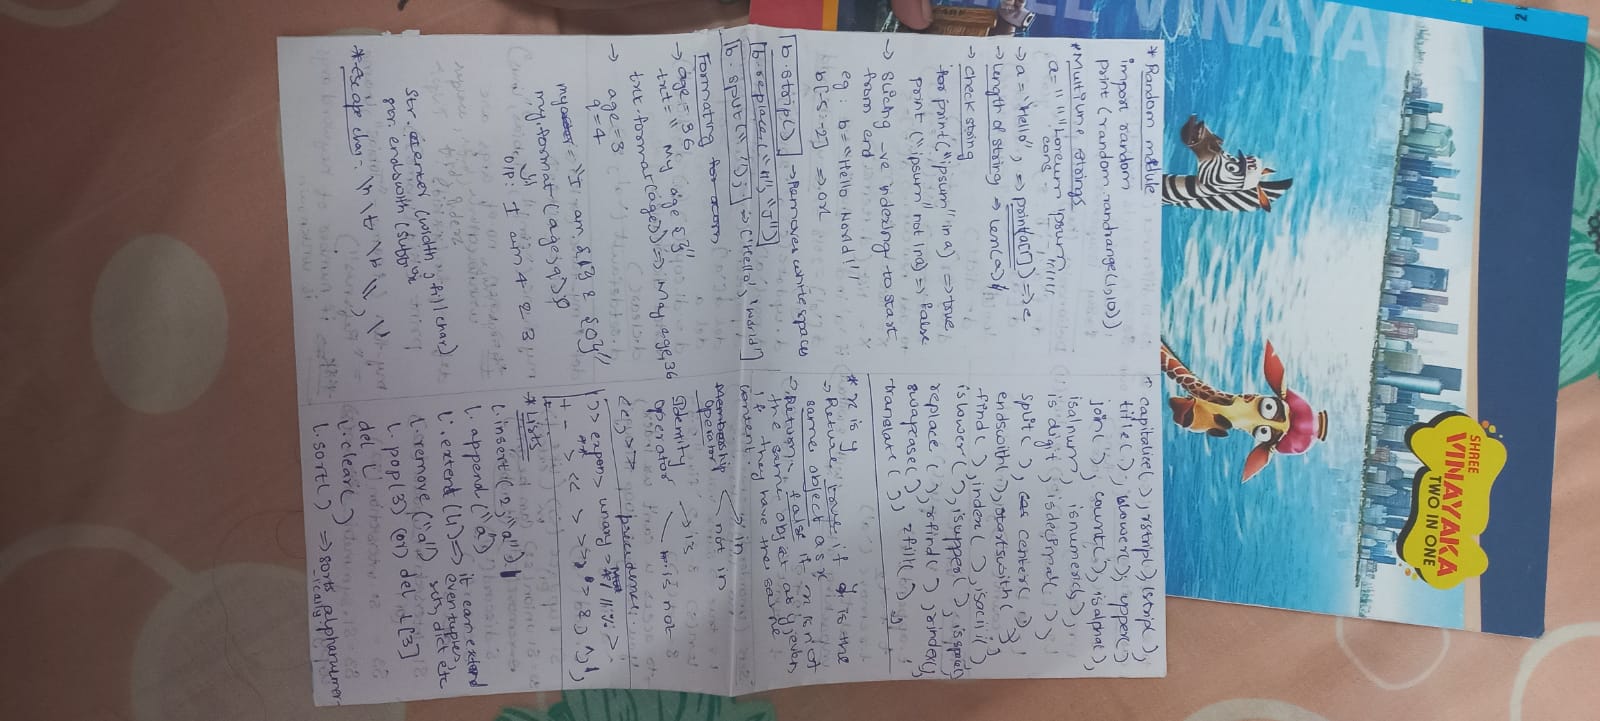 SHREE
VINAYAKA
TWO IN ONE
NYC
* Random module
import random
print (random.randrange(1,10))
* Multiline strings
a= " " " Loreum ipsum
cons
→ a = "Hello", => print(a[1]) => e
→ Length of string => len(a)
→ check string
for print("ipsum" in a) => true
print ("ipsum" not in a) => False
→ Slicing -ve indexing to start
from end
eg: b= "Hello World!"
b[-5:-2] => orl
b.strip() → Removes white spaces
b.replace("H", "J")
b.split(","); => ['Hello', 'World!']
Formating
→ age = 36
txt = " My age {}"
txt.format(age)) => May age, 36
→ age=3
q=4
my = "I am {1} & {0}"
my.format (age,q);
O/P: I am 4 & 3
str.center (width, fill char)
endswith (substr
* escape char - \n \t \b \\ , \'
capitalize( ), rstrip( ), lstrip( ),
title( ), lower( ), upper( )
join( ), count( ), isalpha( ),
isalnum, isnumeric( ),
is digit, isdecimal( ),
split( ), center( ),
endswith( ), startswith( ),
find( ), index( ), isacii i( ),
islower( ), isupper( ), isspace(),
replace ( ), rfind( ), rindex(),
swapcase( ), zfill( ),
translate ( )
* x is y
→ Return true if y is the
same object as x
→ Return false if x is not
the same object at y, even
if they have the same
content.
Membership → in
Operator not in
Identity → is
operator is not
precidence.
( )> expon> unary > * / // % >
+ - > << > >>, > &, ^, |,
* Lists
l.insert (2, "a")
l. append ("a")
l.extend (L1) => it can extend
even tuples,
sets, dict etc
l. remove ("a")
l. pop(3) (or) del L[3]
del L
l.clear( )
l.sort( ) => sorts alphanumer-
-ically